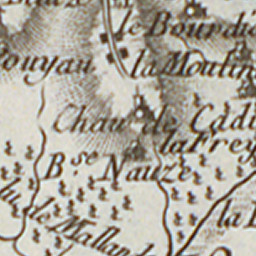 le Bourdi
Pouyau
la Moulin
Chau de Cadi
la Frey
B.se Nauze
du
de Malland
la